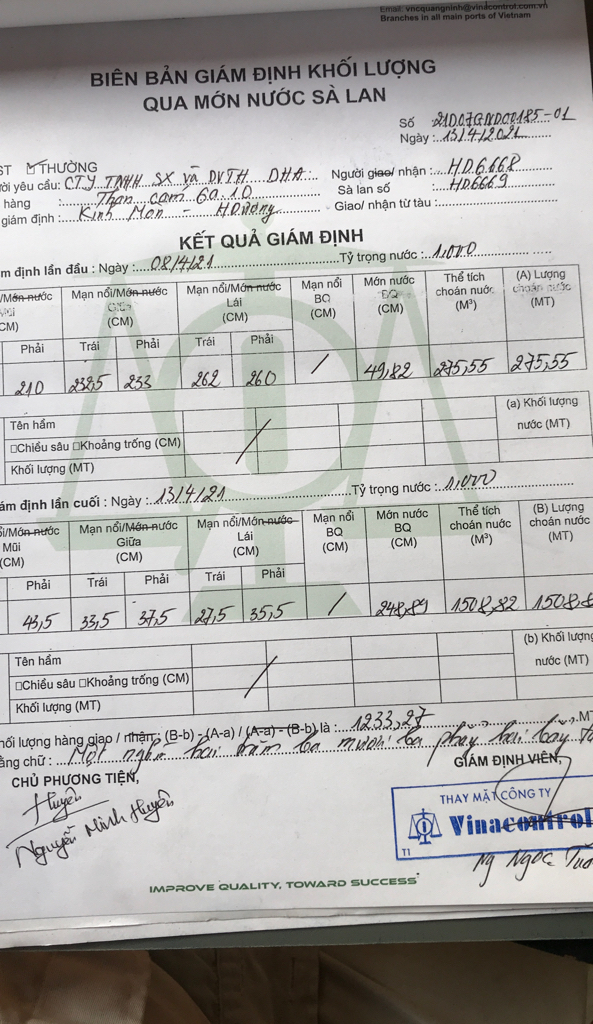 Email: vncquangninh@vinacontrol.com.vn
Branches in all main ports of Vietnam
BIÊN BẢN GIÁM ĐỊNH KHỐI LƯỢNG
QUA MỚN NƯỚC SÀ LAN
Số 21D07GND00185-01
Ngày: 13/4/2021
ST THƯỜNG
ười yêu cầu: CTY TNHH SX và DVTH DHA Người giao/ nhận: HD6668
hàng : Than cám 6a.10 Sà lan số : HD6669
giám định : Kinh Môn - HDương Giao/ nhận từ tàu :
KẾT QUẢ GIÁM ĐỊNH
ám định lần đầu : Ngày : 08/4/21 Tỷ trọng nước : 1,000
/Mớn nước Mũi (CM) Mạn nổi/Mớn nước Giữa (CM) Mạn nổi/Mớn nước Lái (CM) Mạn nổi BQ (CM) Mớn nước BQ (CM) Thể tích choán nước (M³) (A) Lượng choán nước (MT)
Phải Trái Phải Trái Phải
210 232,5 233 262 260 / 49,82 275,55 275,55
Tên hầm (a) Khối lượng nước (MT)
□Chiều sâu □Khoảng trống (CM)
Khối lượng (MT)
ám định lần cuối : Ngày : 13/4/21 Tỷ trọng nước : 1,000
ổi/Mớn nước Mũi (CM) Mạn nổi/Mớn nước Giữa (CM) Mạn nổi/Mớn nước Lái (CM) Mạn nổi BQ (CM) Mớn nước BQ (CM) Thể tích choán nước (M³) (B) Lượng choán nước (MT)
Phải Trái Phải Trái Phải
43,5 33,5 37,5 27,5 35,5 / 248,89 1508,82 1508,8
Tên hầm (b) Khối lượng nước (MT)
□Chiều sâu □Khoảng trống (CM)
Khối lượng (MT)
hối lượng hàng giao / nhận : (B-b) - (A-a) / (A-a) - (B-b) là : 1233,27 MT
ằng chữ : Một nghìn hai trăm ba mươi ba phẩy hai bảy
CHỦ PHƯƠNG TIỆN, GIÁM ĐỊNH VIÊN,
Huyên
Nguyễn Minh Huyên
THAY MẶT CÔNG TY
Vinacontrol
T1
Ng Ngọc
IMPROVE QUALITY, TOWARD SUCCESS